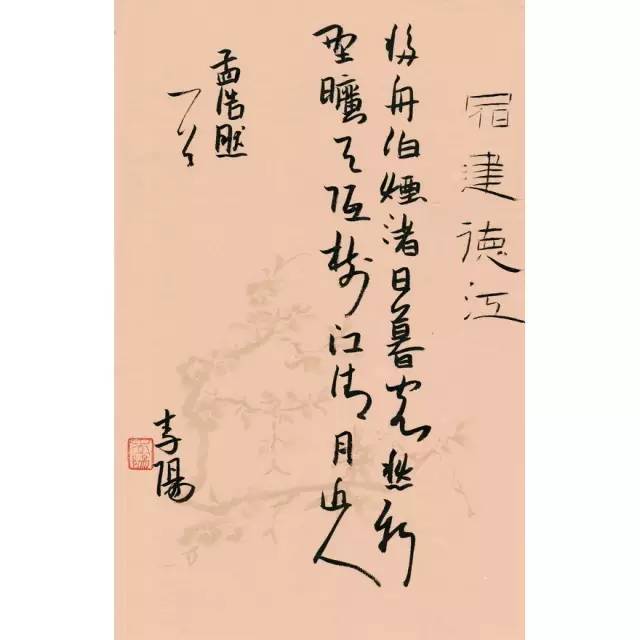 宿建德江
移舟泊煙渚日暮客愁新
野曠天低樹江清月近人
孟浩然
李陽